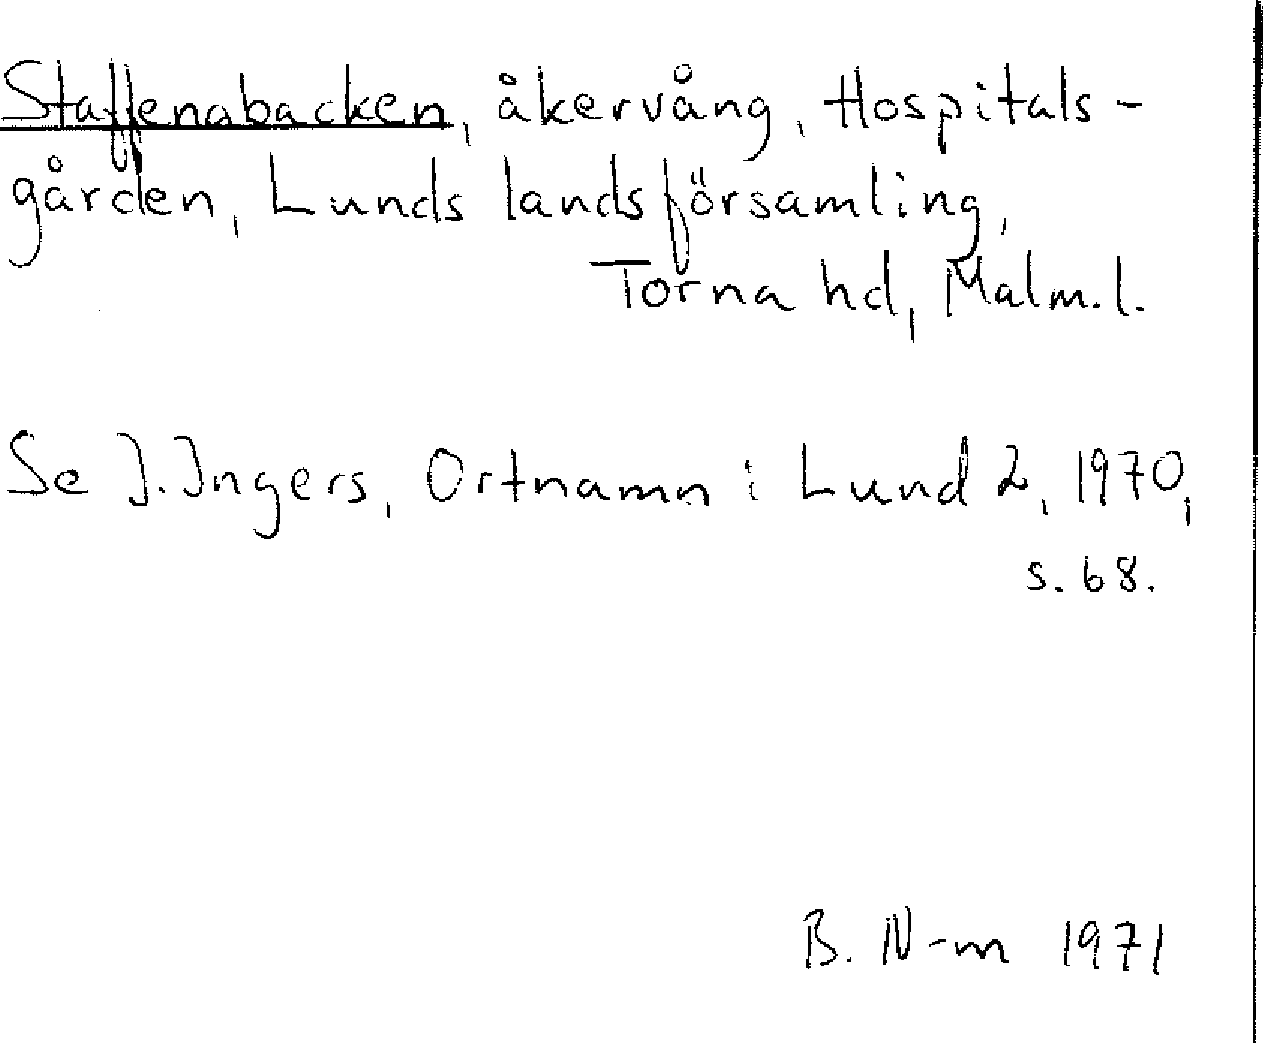 Staffenabacken, åkervång, Hospitals-
gården, Lunds landsförsamling,
Torna hd, Malm.l.
Se J. Ingers, Ortnamn i Lund 2, 1970,
s. 68.
B. N-m 1971